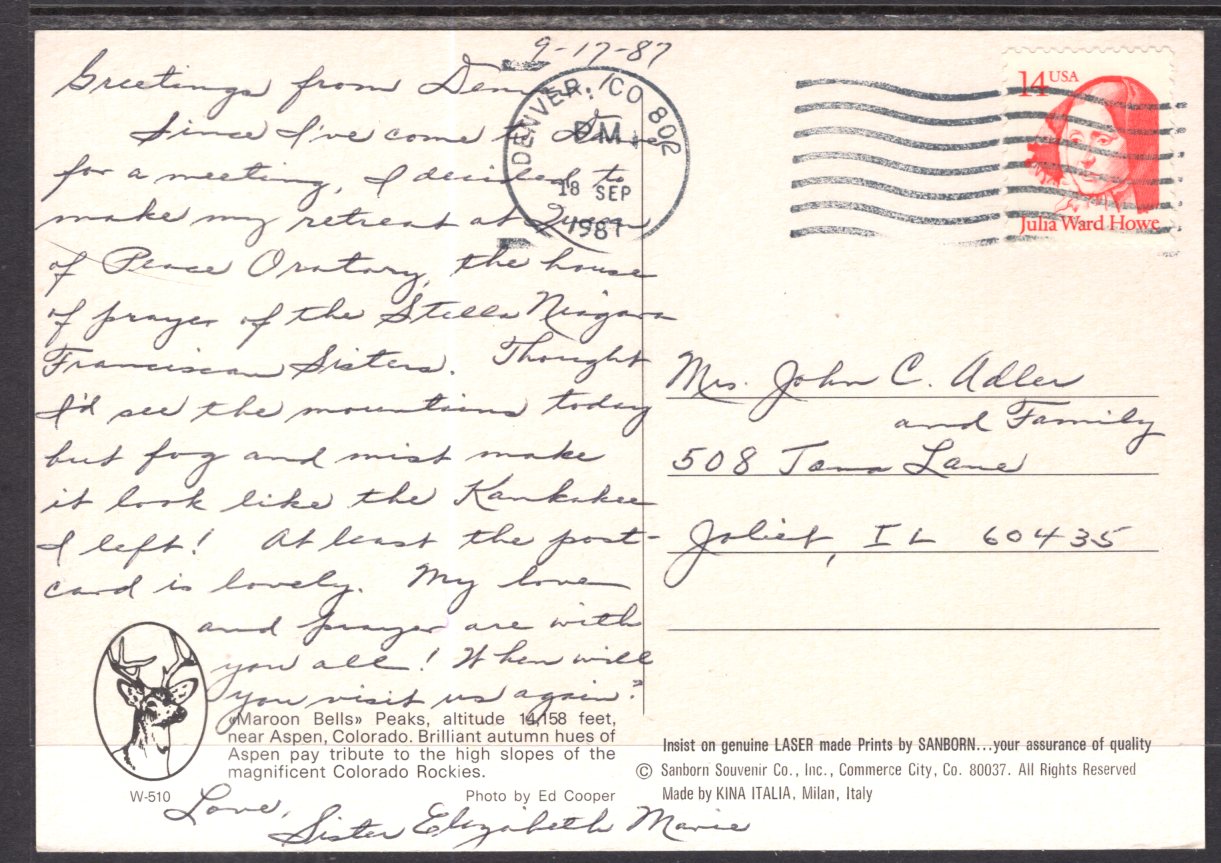 9-17-87
Greetings from Denver!
Since I've come to Denver
for a meeting, I decided to
make my retreat at Queen
of Peace Oratory, the house
of prayer of the Stella Niagara
Franciscan Sisters. Thought
I'd see the mountains today
but fog and mist make
it look like the Kankakee
I left! At least the post-
card is lovely. My love
and prayer are with
you all! When will
you visit us again?
Love,
Sister Elizabeth Marie
«Maroon Bells» Peaks, altitude 14,158 feet,
near Aspen, Colorado. Brilliant autumn hues of
Aspen pay tribute to the high slopes of the
magnificent Colorado Rockies.
W-510
Photo by Ed Cooper
DENVER, CO 802
PM
18 SEP
1987
14 USA
Julia Ward Howe
Mrs. John C. Adler
and Family
508 Tana Lane
Joliet, IL 60435
Insist on genuine LASER made Prints by SANBORN...your assurance of quality
© Sanborn Souvenir Co., Inc., Commerce City, Co. 80037. All Rights Reserved
Made by KINA ITALIA, Milan, Italy